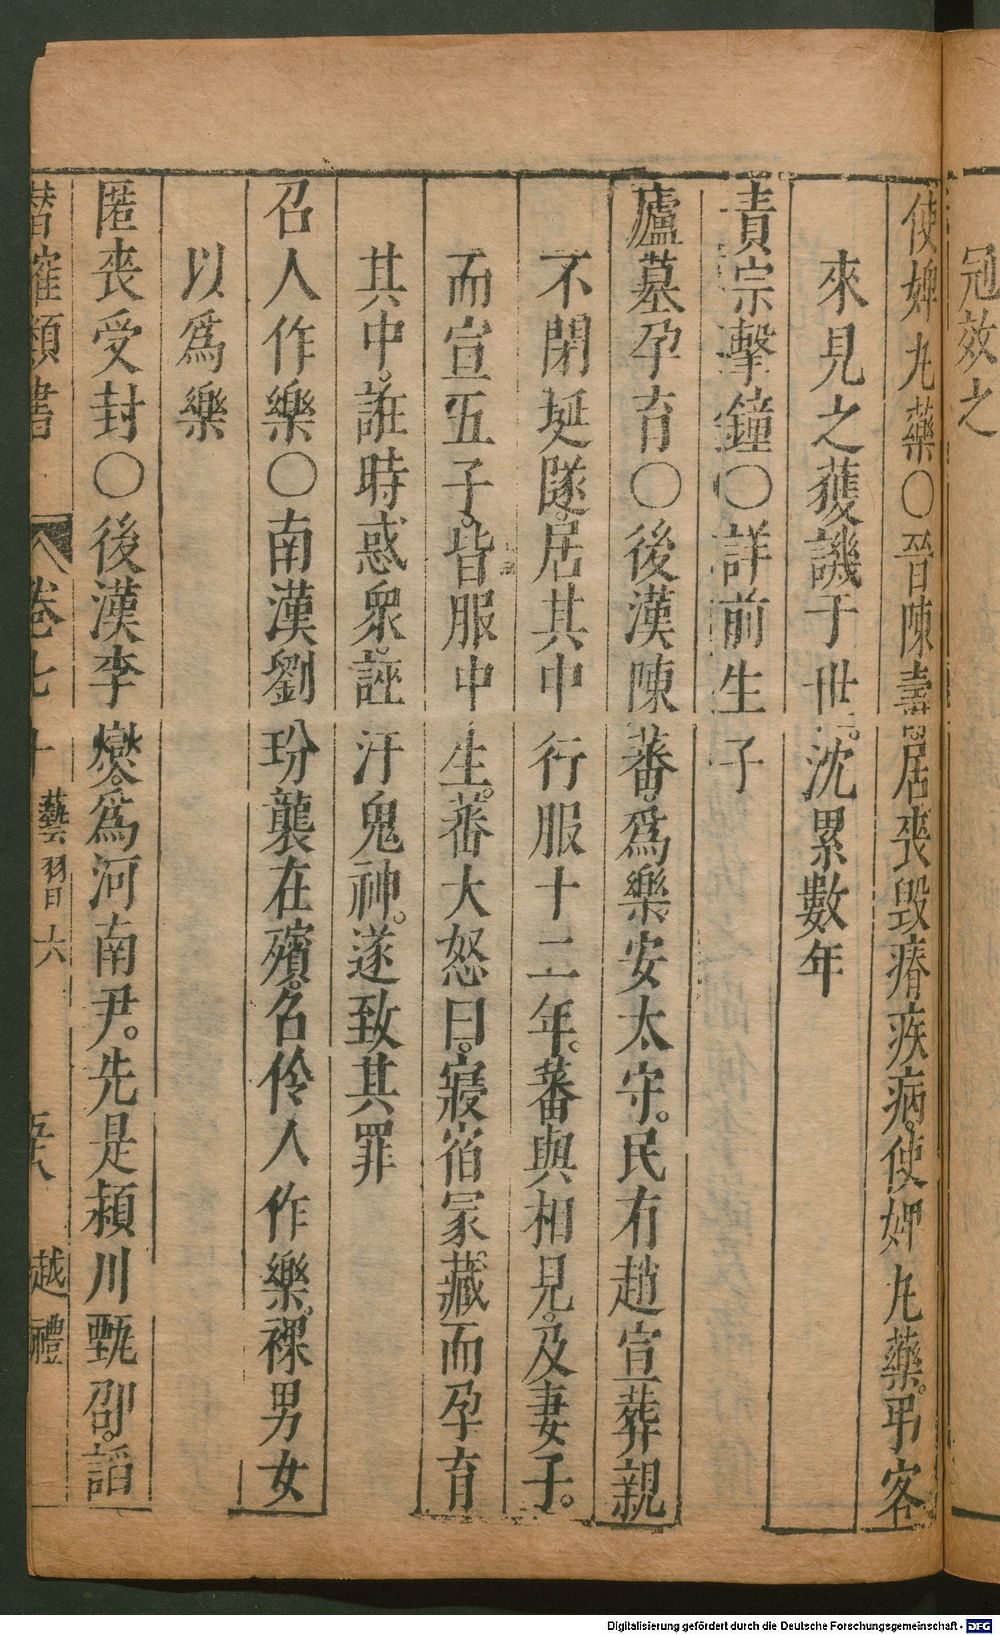 冠效之
使婢丸藥〇晉陳壽居喪毀瘠疾病使婢丸藥弔客
來見之獲譏于世沈累數年
責宗擊鐘〇詳前生子
廬墓孕育〇後漢陳蕃爲樂安太守民有趙宣葬親
不閉埏隧居其中行服十二年蕃與相見及妻子
而宣五子皆服中生蕃大怒曰寢宿冢藏而孕育
其中誑時惑衆誣汙鬼神遂致其罪
召人作樂〇南漢劉玢襲在殯召伶人作樂裸男女
以爲樂
匿喪受封〇後漢李燮爲河南尹先是潁川甄邵諂
潛確類書 卷七十 藝習六 五八 越禮
Digitalisierung gefördert durch die Deutsche Forschungsgemeinschaft - DFG